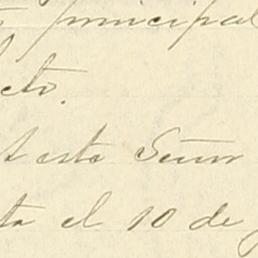 principal
cto.
este Señor
ta el 10 de